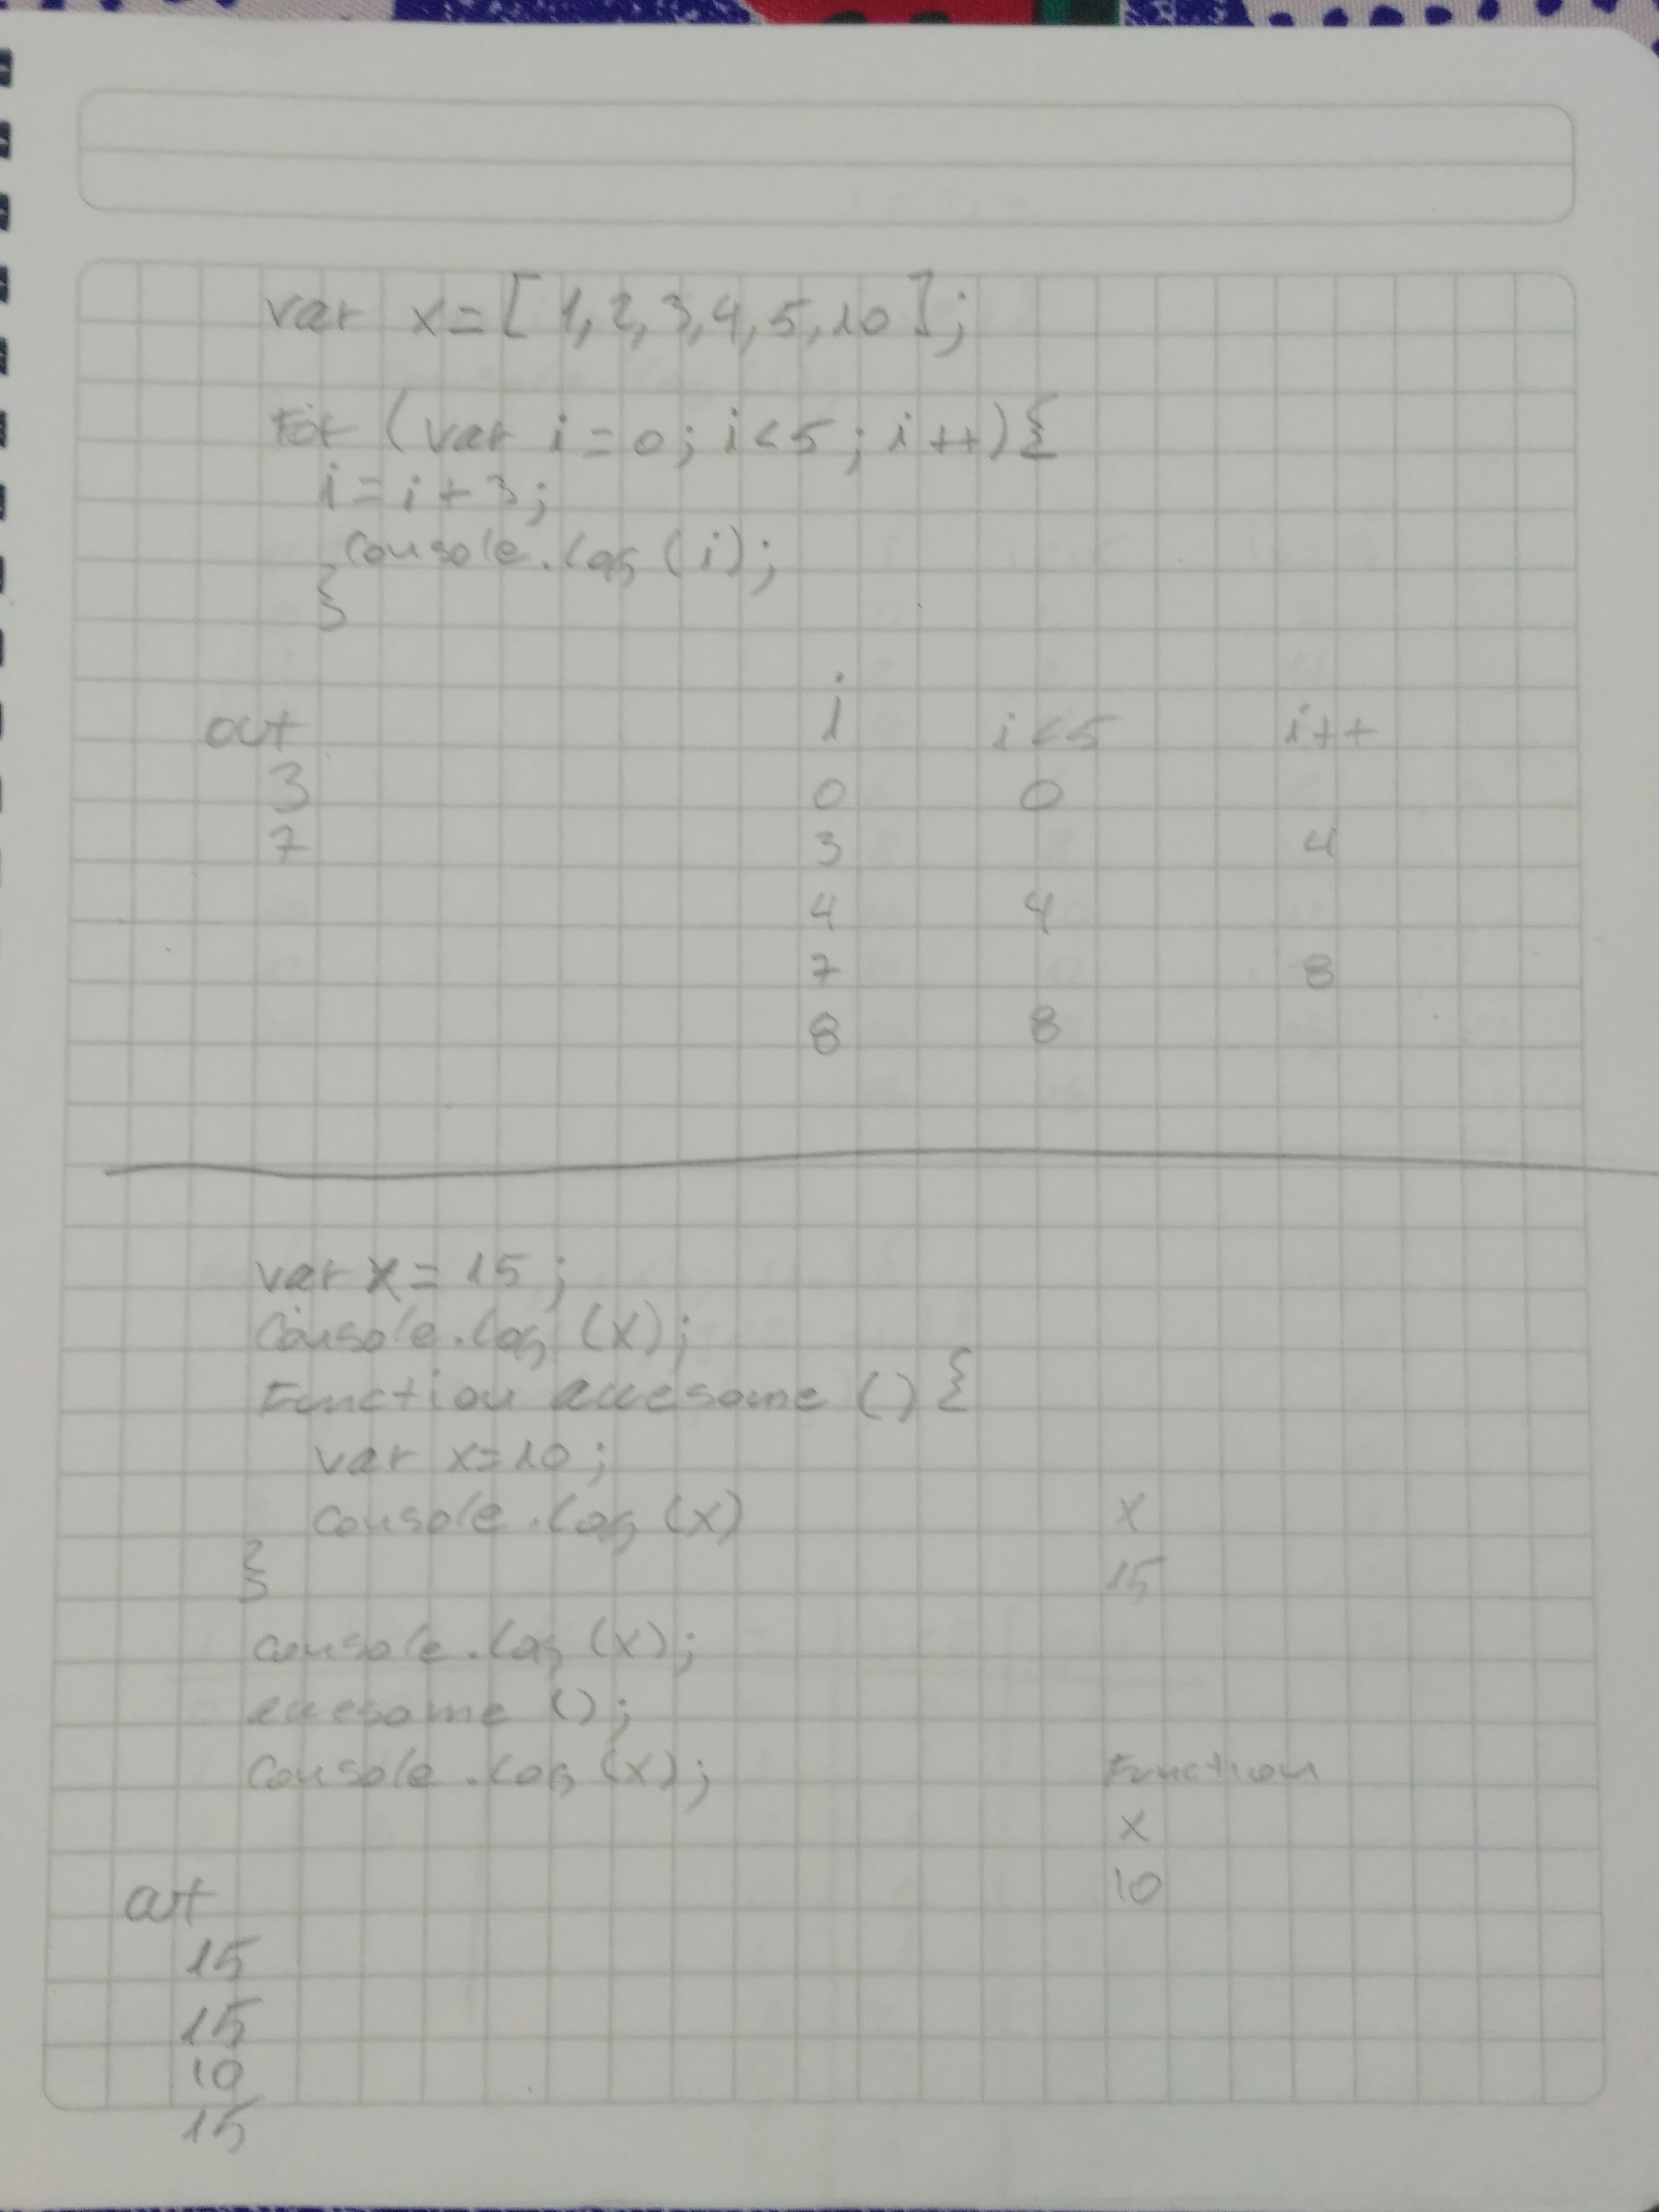 var x = [ 1, 2, 3, 4, 5, 10 ];
For (var i = 0; i < 5; i ++) {
i = i + 3;
console.log (i);
}
out i i < 5 i++
3 0 0
7 3 4
4 4
7 8
8 8
var x = 15 ;
Console.log (x);
Function awesome () {
var x = 10 ;
console.log (x) x
} 15
console.log (x);
awesome ();
Console.log (x); Function
x
out 10
15
15
10
15